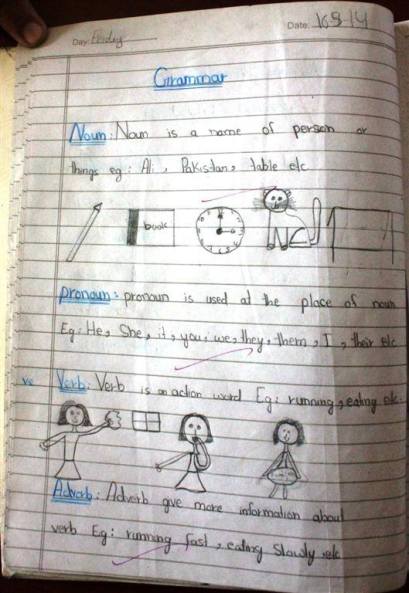 Day: Friday
Date:
Grammar
Noun: Noun is a name of person or
things eg: Ali, Pakistan, table etc
book
pronoun: pronoun is used at the place of noun
Eg: He, She, it, you, we, they, them, I, their etc
Verb: Verb is an action word Eg: running, eating etc.
Adverb: Adverb give more information about
verb Eg: running fast, eating slowly etc